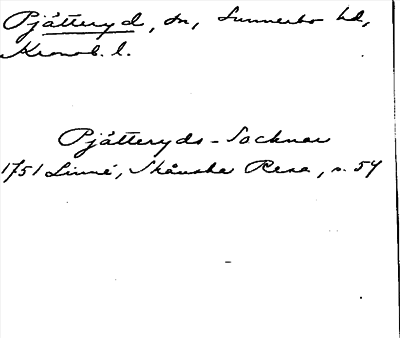 Pjätteryd, sn, Sunnerbo hd,
Kronob. l.
Pjätteryds-Socknar
1751 Linné, Skånska Resa, s. 54